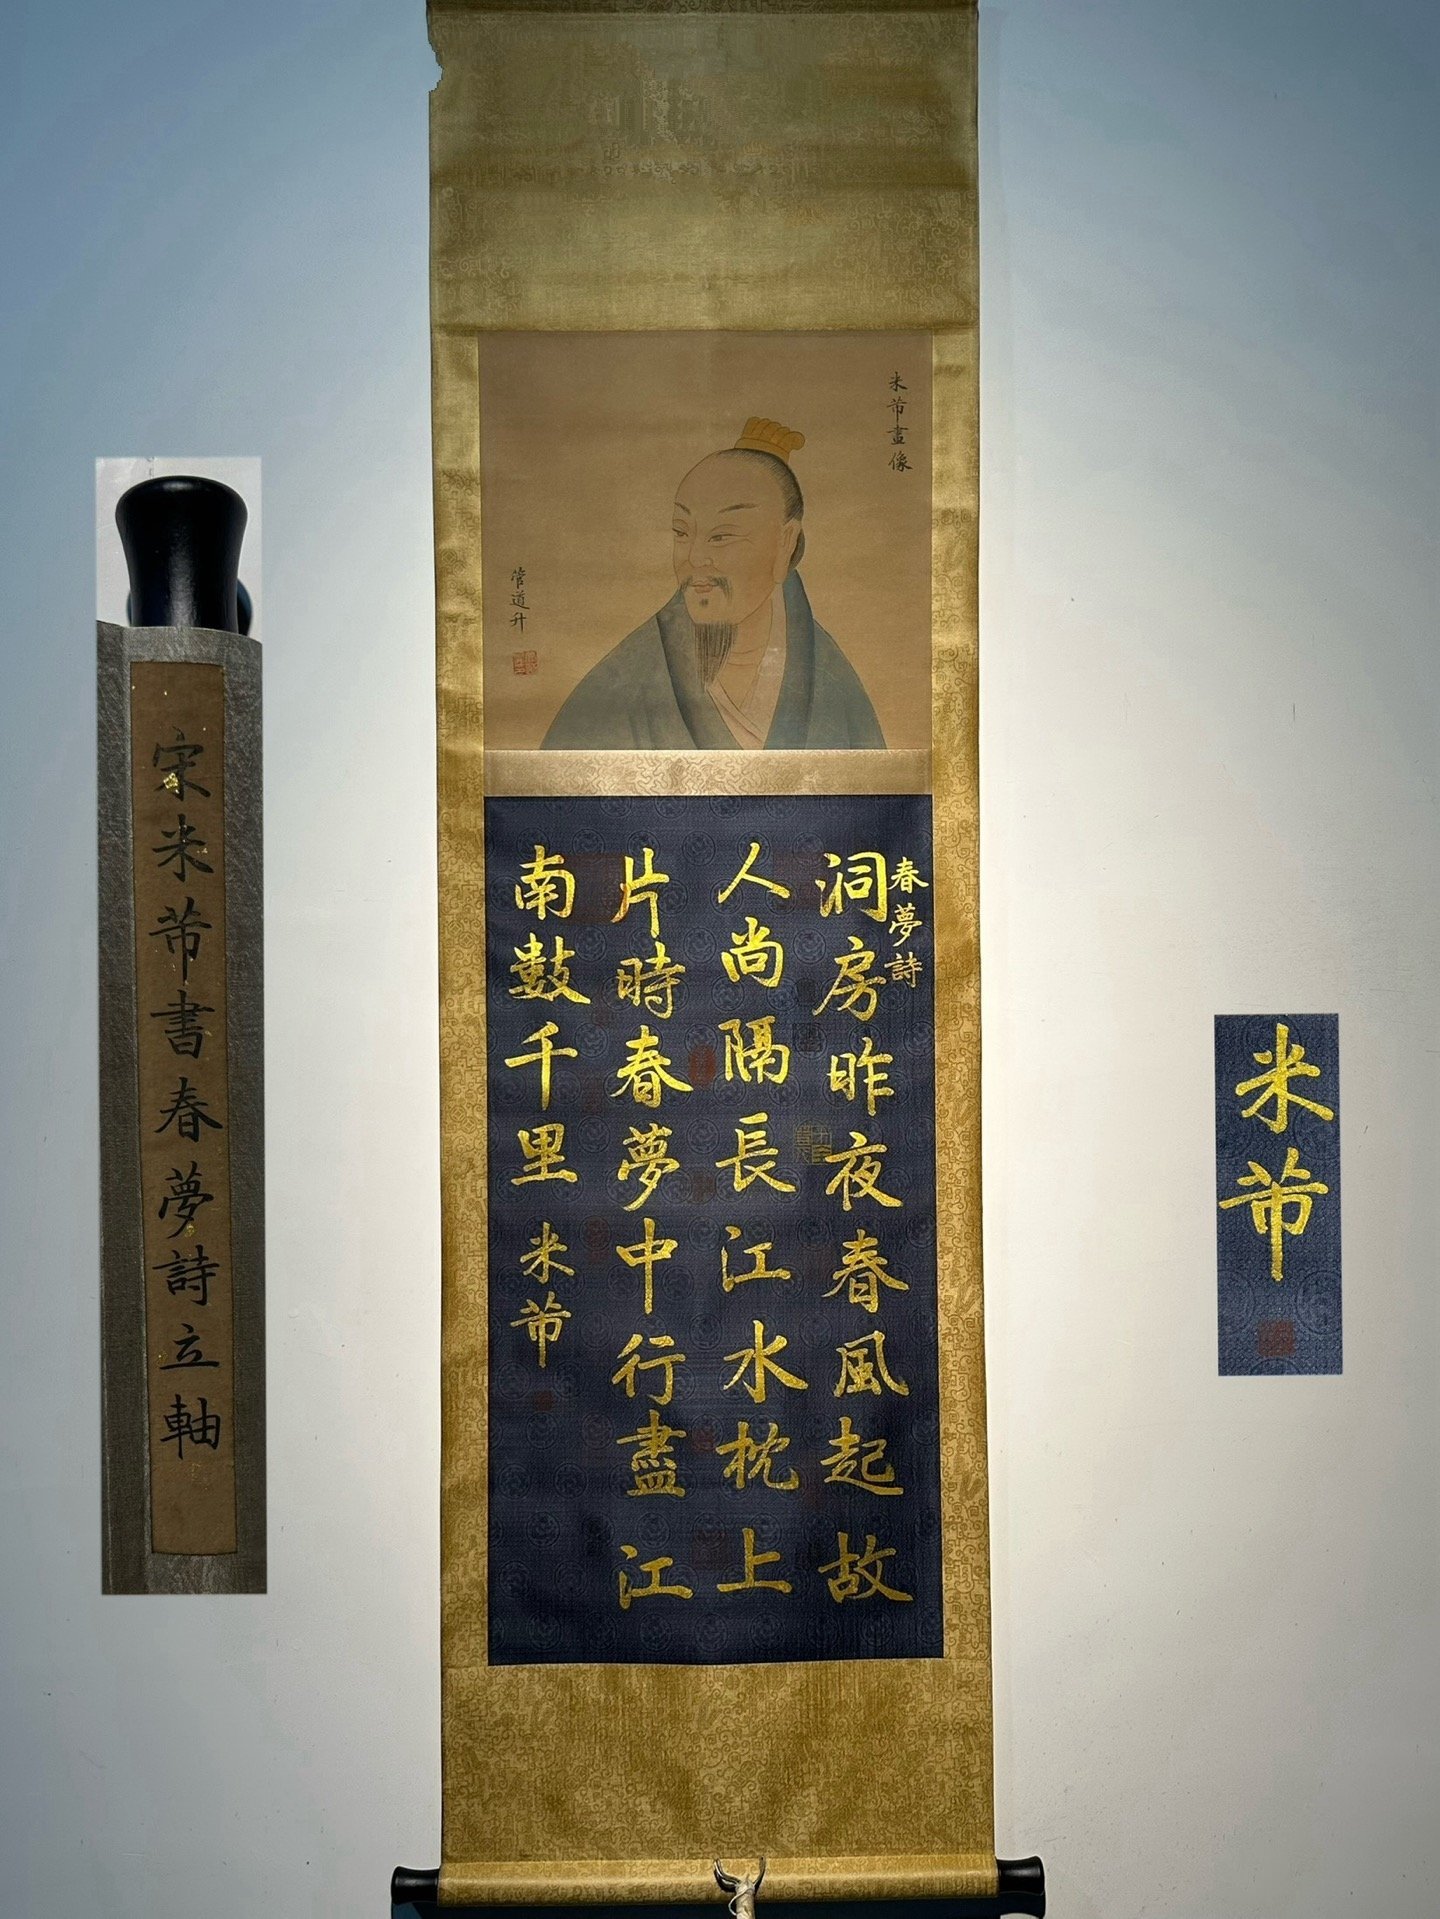 米芾畫像
管道升
春夢詩
洞房昨夜春風起故
人尚隔長江水枕上
片時春夢中行盡江
南數千里 米芾
宋米芾書春夢詩立軸
米芾